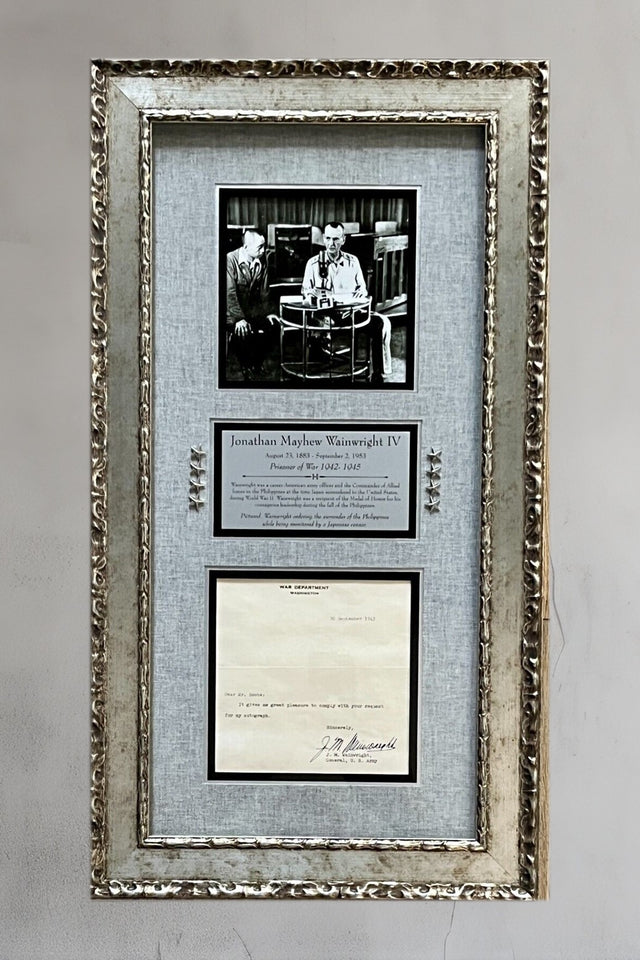 Jonathan Mayhew Wainwright IV
August 23, 1883 - September 2, 1953
Prisoner of War 1942-1945
Wainwright was a career American army officer and the Commander of Allied
forces in the Philippines at the time Japan surrendered to the United States,
during World War II. Wainwright was a recipient of the Medal of Honor for his
courageous leadership during the fall of the Philippines.
Pictured: Wainwright ordering the surrender of the Philippines
while being monitored by a Japanese censor.
WAR DEPARTMENT
WASHINGTON
September
Dear Mr.
It gives me great pleasure to comply with your request
for my autograph.
Sincerely,
J M Wainwright
J. M. Wainwright,
General, U. S. Army